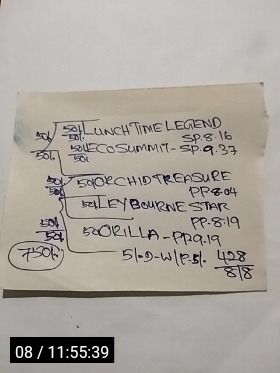 50/- 50/- LUNCHTIME LEGEND
SP.8.16
50/- 50/- ECO SUMMIT - SP.9.37
50/-
50/- 50/- ORCHID TREASURE
50/- PP.8.04
50/- LEYBOURNE STAR
PP.8.19
50/- 50 ORILLA - PP.9.19
50/-
750/- 5/-D-W/P.5/. 428
818
08 / 11:55:39